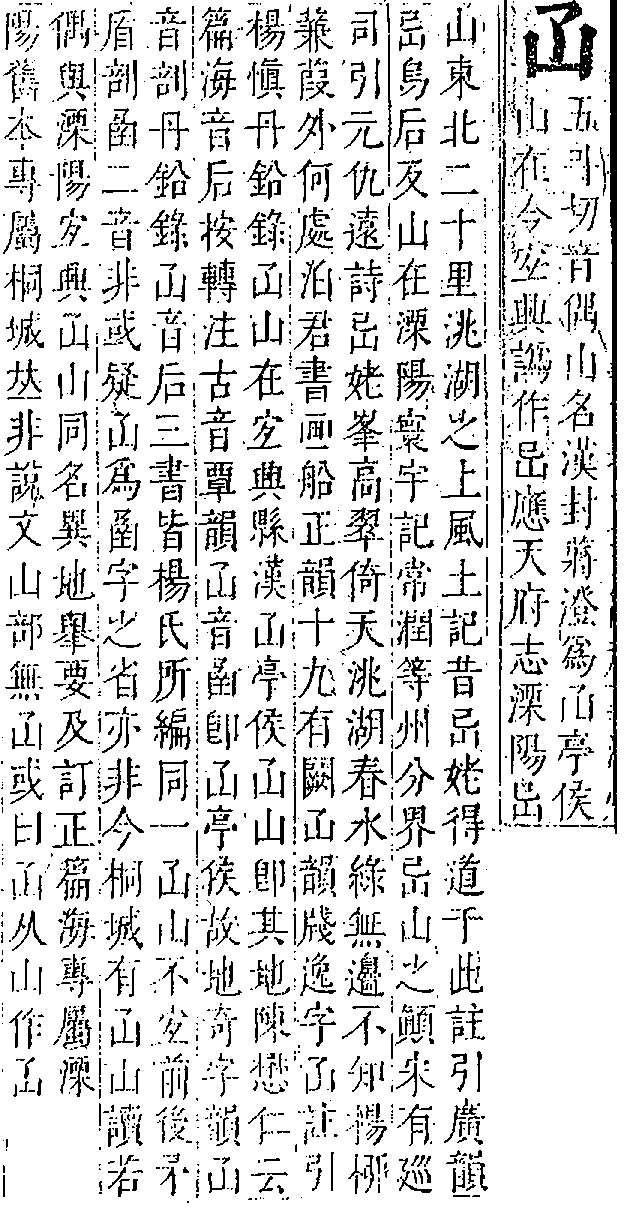 五斗切音偶山名漢封蔣澄爲亭侯
山在今宜興譌作應天府志溧陽
山東北二十里洮湖之上風土記昔姥得道于此註引廣韻
烏后反山在溧陽寰宇記常潤等州分界山之顛宋有巡
司引元仇遠詩姥峯高翠倚天洮湖春水綠無邊不知楊柳
蒹葭外何處泊君書画船正韻十九有闕韻牋逸字註引
楊愼丹鉛錄山在宜興縣漢亭侯山卽其地陳懋仁云
篇海音后按轉注古音覃韻音圅卽亭侯故地奇字韻
音剖丹鉛錄音后三書皆楊氏所編同一山不宜前後矛
盾剖圅二音非或疑爲圅字之省亦非今桐城有山讀若
偶與溧陽宜興山同名異地舉要及訂正篇海專屬溧
陽舊本專屬桐城𠀤非說文山部無或曰从山作